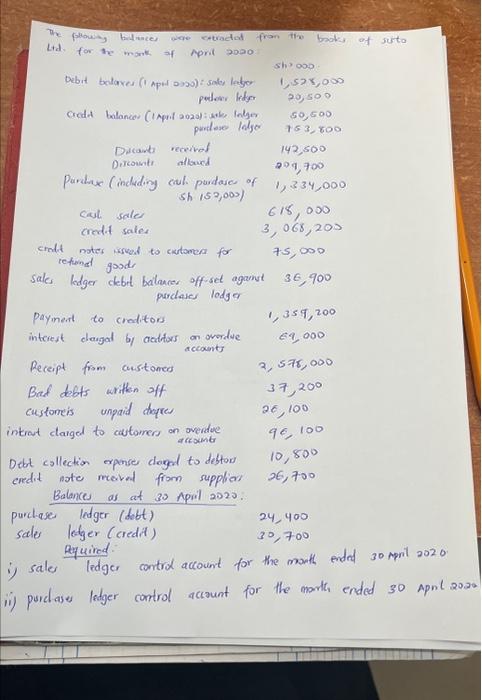 The following balances were extracted from the books of Susto
Ltd. for the month of April 2020:
sh' 000
Debit balances (1 April 2020): sales ledger 1,528,000
purchases ledger 20,500
Credit balances (1 April 2020): sales ledger 50,500
purchases ledger 753,800
Discounts received 142,500
Discounts allowed 209,700
Purchase (including cash purchases of 1,334,000
sh 152,000)
cash sales 618,000
credit sales 3,068,200
credit notes issued to customers for 75,000
returned goods
sales ledger debit balances off-set against 36,900
purchases ledger
payment to creditors 1,359,200
interest charged by creditors on overdue 69,000
accounts
Receipt from customers 2,578,000
Bad debts written off 37,200
customers unpaid cheques 26,100
intrest charged to customers on overdue 96,100
accounts
Debt collection expenses charged to debtors 10,800
credit note received from suppliers 26,700
Balances as at 30 April 2020:
purchases ledger (debt) 24,400
sales ledger (credit) 32,700
Required:
i) sales ledger control account for the month ended 30 April 2020
ii) purchases ledger control account for the month ended 30 April 2020